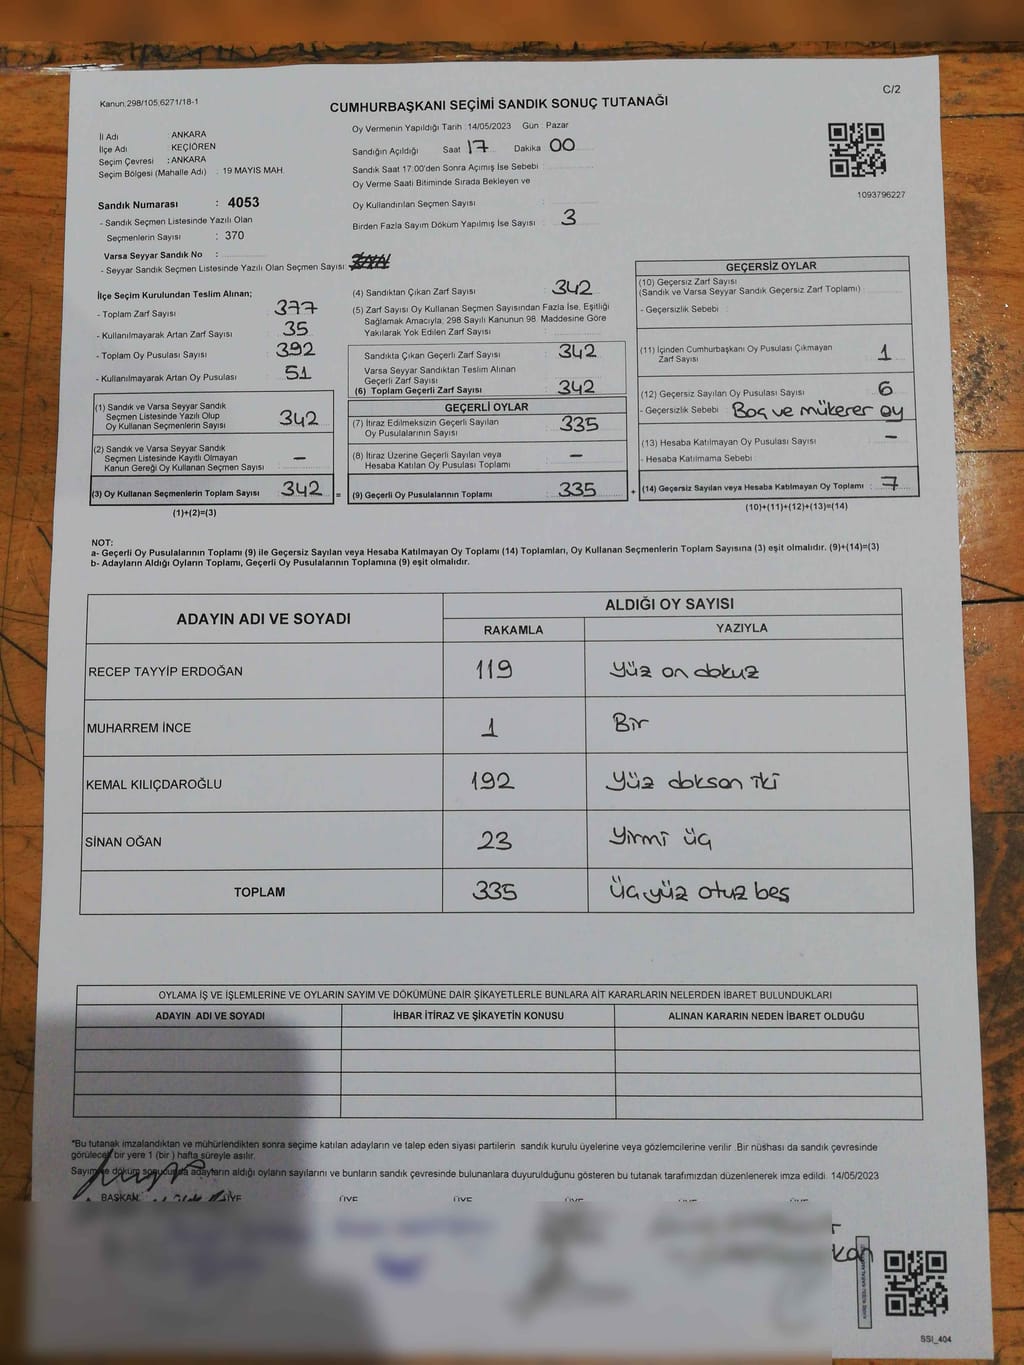 Kanun.298/105,6271/18-1
C/2
CUMHURBAŞKANI SEÇİMİ SANDIK SONUÇ TUTANAĞI
İl Adı : ANKARA
İlçe Adı : KEÇİÖREN
Seçim Çevresi : ANKARA
Seçim Bölgesi (Mahalle Adı) : 19 MAYIS MAH.
Sandık Numarası : 4053
- Sandık Seçmen Listesinde Yazılı Olan
Seçmenlerin Sayısı : 370
Varsa Seyyar Sandık No :
- Seyyar Sandık Seçmen Listesinde Yazılı Olan Seçmen Sayısı:
Oy Vermenin Yapıldığı Tarih : 14/05/2023 Gün : Pazar
Sandığın Açıldığı Saat 17 Dakika 00
Sandık Saat 17:00'den Sonra Açımış İse Sebebi :
Oy Verme Saati Bitiminde Sırada Bekleyen ve
Oy Kullandırılan Seçmen Sayısı :
Birden Fazla Sayım Döküm Yapılmış İse Sayısı : 3
1093796227
İlçe Seçim Kurulundan Teslim Alınan;
- Toplam Zarf Sayısı : 377
- Kullanılmayarak Artan Zarf Sayısı : 35
- Toplam Oy Pusulası Sayısı : 392
- Kullanılmayarak Artan Oy Pusulası : 51
(1) Sandık ve Varsa Seyyar Sandık
Seçmen Listesinde Yazılı Olup
Oy Kullanan Seçmenlerin Sayısı : 342
(2) Sandık ve Varsa Seyyar Sandık
Seçmen Listesinde Kayıtlı Olmayan
Kanun Gereği Oy Kullanan Seçmen Sayısı : –
(3) Oy Kullanan Seçmenlerin Toplam Sayısı : 342 =
(1)+(2)=(3)
(4) Sandıktan Çıkan Zarf Sayısı : 342
(5) Zarf Sayısı Oy Kullanan Seçmen Sayısından Fazla İse, Eşitliği
Sağlamak Amacıyla; 298 Sayılı Kanunun 98. Maddesine Göre
Yakılarak Yok Edilen Zarf Sayısı :
Sandıkta Çıkan Geçerli Zarf Sayısı : 342
Varsa Seyyar Sandıktan Teslim Alınan
Geçerli Zarf Sayısı :
(6) Toplam Geçerli Zarf Sayısı : 342
GEÇERLİ OYLAR
(7) İtiraz Edilmeksizin Geçerli Sayılan
Oy Pusulalarının Sayısı : 335
(8) İtiraz Üzerine Geçerli Sayılan veya
Hesaba Katılan Oy Pusulası Toplamı : –
(9) Geçerli Oy Pusulalarının Toplamı : 335 +
GEÇERSİZ OYLAR
(10) Geçersiz Zarf Sayısı
(Sandık ve Varsa Seyyar Sandık Geçersiz Zarf Toplamı) :
- Geçersizlik Sebebi :
(11) İçinden Cumhurbaşkanı Oy Pusulası Çıkmayan
Zarf Sayısı : 1
(12) Geçersiz Sayılan Oy Pusulası Sayısı : 6
- Geçersizlik Sebebi : Boş ve mükerer oy
(13) Hesaba Katılmayan Oy Pusulası Sayısı : –
- Hesaba Katılmama Sebebi :
(14) Geçersiz Sayılan veya Hesaba Katılmayan Oy Toplamı : 7
(10)+(11)+(12)+(13)=(14)
NOT:
a- Geçerli Oy Pusulalarının Toplamı (9) ile Geçersiz Sayılan veya Hesaba Katılmayan Oy Toplamı (14) Toplamları, Oy Kullanan Seçmenlerin Toplam Sayısına (3) eşit olmalıdır. (9)+(14)=(3)
b- Adayların Aldığı Oyların Toplamı, Geçerli Oy Pusulalarının Toplamına (9) eşit olmalıdır.
ADAYIN ADI VE SOYADI
ALDIĞI OY SAYISI
RAKAMLA YAZIYLA
RECEP TAYYİP ERDOĞAN 119 Yüz on dokuz
MUHARREM İNCE 1 Bir
KEMAL KILIÇDAROĞLU 192 Yüz doksan iki
SİNAN OĞAN 23 Yirmi üç
TOPLAM 335 Üç yüz otuz beş
OYLAMA İŞ VE İŞLEMLERİNE VE OYLARIN SAYIM VE DÖKÜMÜNE DAİR ŞİKAYETLERLE BUNLARA AİT KARARLARIN NELERDEN İBARET BULUNDUKLARI
ADAYIN ADI VE SOYADI İHBAR İTİRAZ VE ŞİKAYETİN KONUSU ALINAN KARARIN NEDEN İBARET OLDUĞU
*Bu tutanak imzalandıktan ve mühürlendikten sonra seçime katılan adayların ve talep eden siyasi partilerin sandık kurulu üyelerine veya gözlemcilerine verilir. Bir nüshası da sandık çevresinde
görülecek bir yere 1 (bir ) hafta süreyle asılır.
Sayım ve döküm sonucunda adayların aldığı oyların sayılarını ve bunların sandık çevresinde bulunanlara duyurulduğunu gösteren bu tutanak tarafımızdan düzenlenerek imza edildi. 14/05/2023
BAŞKAN ÜYE ÜYE ÜYE ÜYE ÜYE ÜYE
SSI_404